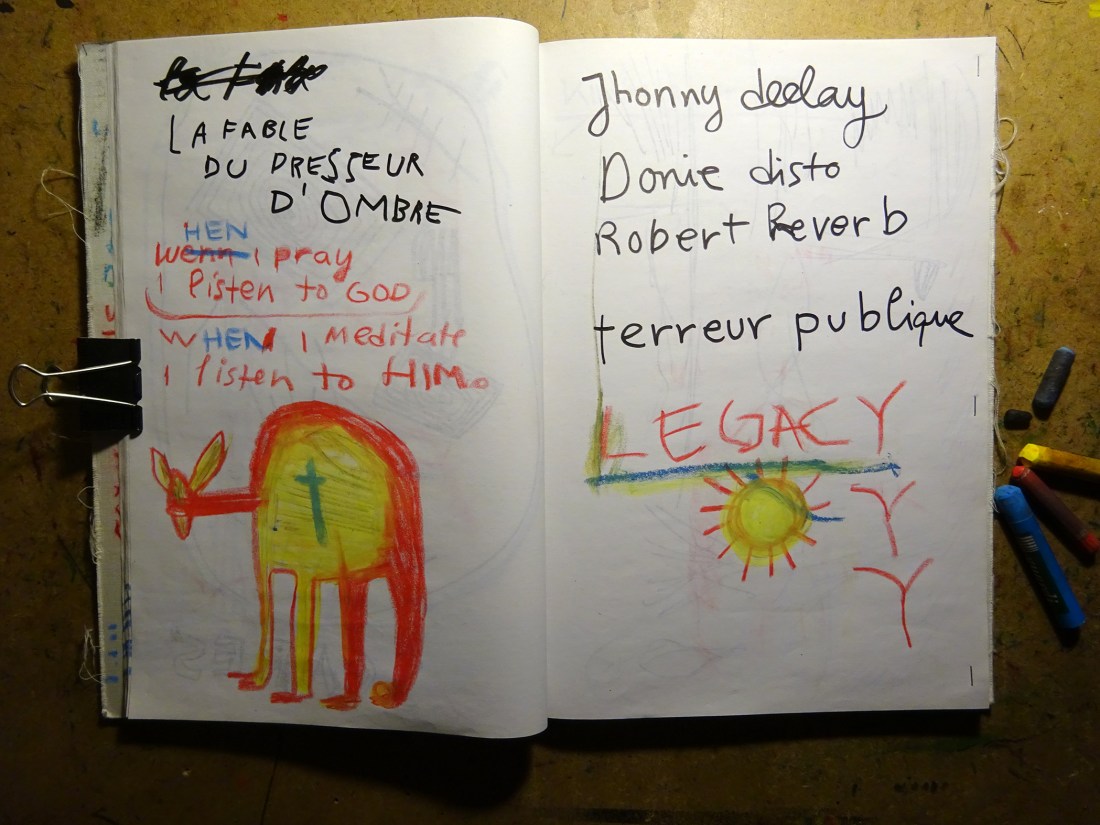 LA FABLE
DU DRESSEUR
D'OMBRE
HEN
wenn I pray
I listen to GOD
WHEN I Meditate
I listen to HIM.
Jhonny deelay
Donie disto
Robert Reverb
terreur publique
LEGACY
Y
Y